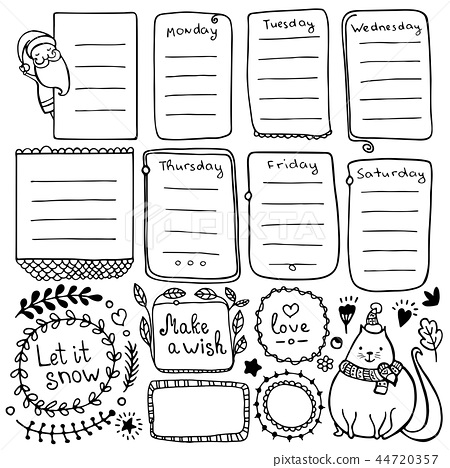 Monday
Tuesday
Wednesday
Thursday
Friday
Saturday
Let it
snow
Make
a wish
love
PIXTA
pixta.jp - 44720357